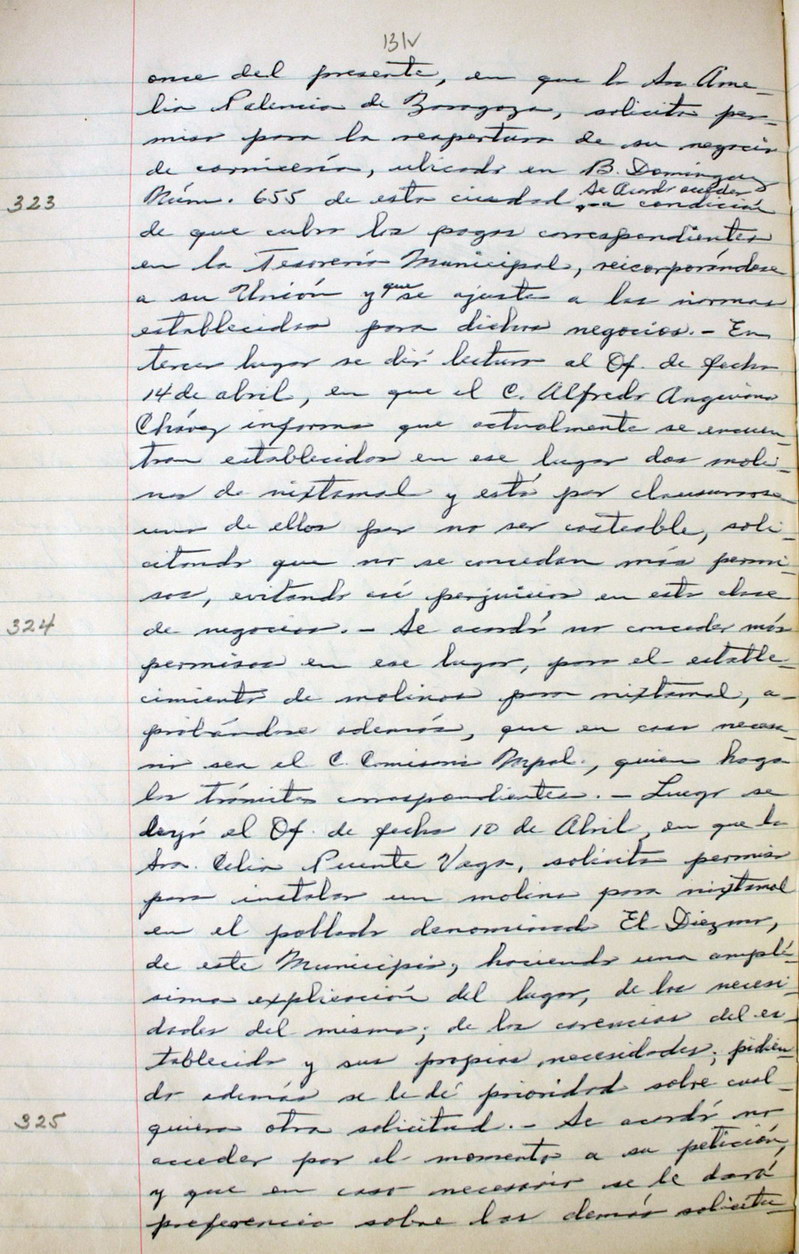 131v
once del presente, en que la Sra Ame-
lia Palencia de Zaragoza, solicita per-
miso para la reapertura de su negocio
de carnicería, ubicado en B. Domínguez
323 Núm. 655 de esta ciudad se Acordó acceder a condición
de que cubra los pagos correspondientes
en la Tesorería Municipal, reicorporándose
a su Unión y que se ajuste a las normas
establecidas para dichos negocios.- En
tercer lugar se dió lectura al Of. de fecha
14 de abril, en que el C. Alfredo Anguiano
Chávez informa que actualmente se encuen-
tran establecidos en ese lugar dos moli-
nos de nixtamal y está por clausurarse
uno de ellos por no ser costeable, soli-
citando que no se concedan más permi-
sos, evitando así perjuicios en esta clase
324 de negocios.- Se acordó no conceder más
permisos en ese lugar, para el estable-
cimiento de molinos para nixtamal, a-
probándose además, que en caso necesa-
rio sea el C. Comisario Mpal., quien haga
los trámites correspondientes.- Luego se
leyó el Of. de fecha 10 de Abril, en que la
Sra. Celia Puente Vega, solicita permiso
para instalar un molino para nixtamal
en el poblado denominado El Diezmo,
de este Municipio, haciendo una amplí-
sima explicación del lugar, de las necesi-
dades del mismo; de las carencias del es-
tablecido y sus propias necesidades; pidien-
do además se le dé prioridad sobre cual-
325 quiera otra solicitud.- Se acordó no
acceder por el momento a su petición,
y que en caso necesario se le dará
preferencia sobre las demás solicitu-